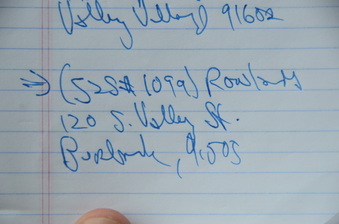 Valley Village 91602
⇒ (525# 1099) Rowlands
120 S. Valley St.
Burbank, 91505